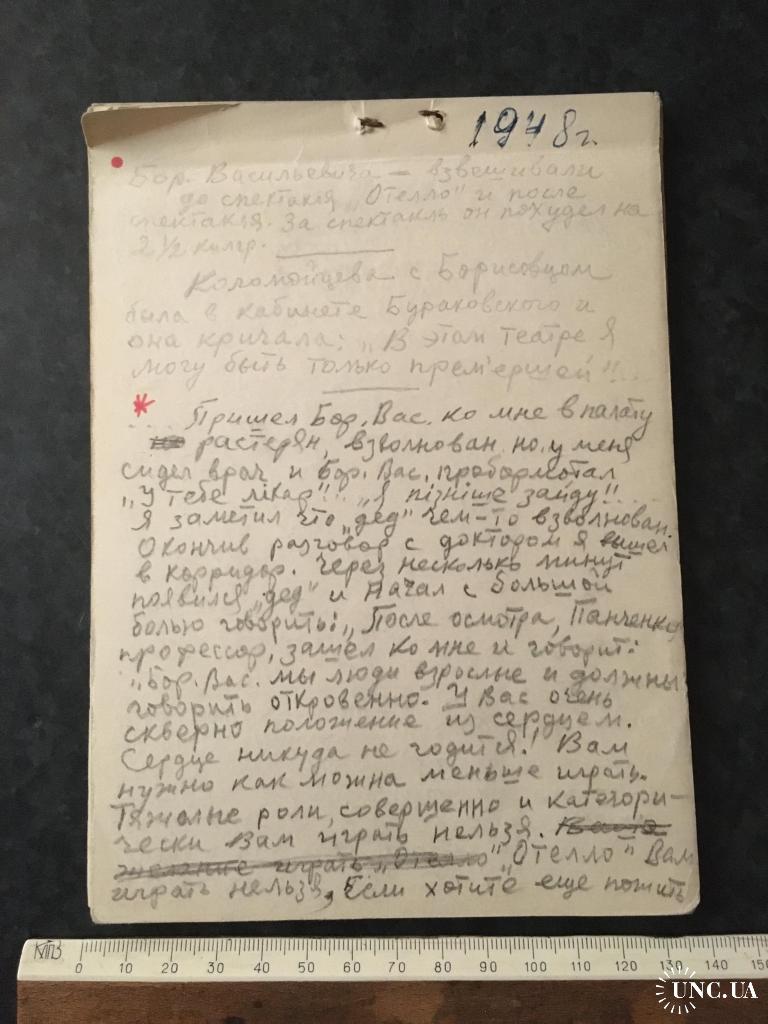 1948 г.
Бор. Васильевича – взвешивали
до спектакля „Отелло" и после
спектакля. За спектакль он похудел на
2 1/2 килгр.
Коломойцева с Борисовцом
была в кабинете Бураковского и
она кричала: „В этом театре я
могу быть только прем'ершей"!..
* .... Пришел Бор. Вас. ко мне в палату
растерян, взволнован, но у меня
сидел врач и Бор. Вас. пробормотал
„У тебе лікар"!.. „Я пізніше зайду"!!..
Я заметил что „дед" чем-то взволнован.
Окончив разговор с доктором я вышел
в корридор. Через несколько минут
появился „дед" и начал с большой
болью говорить: „После осмотра, Панченко,
профессор, зашел ко мне и говорит:
„Бор. Вас. мы люди взрослые и должны
говорить откровенно. У Вас очень
скверно положение из сердцем.
Сердце никуда не годится! Вам
нужно как можна меньше играть.
Тяжолые роли, совершенно и категори-
чески Вам играть нельзя.
желание играть „Отелло" „Отелло" Вам
играть нельзя, Если хотите еще пожить
КПВЗ
0 10 20 30 40 50 60 70 80 90 100 110 120 130 140 150
UNC.UA